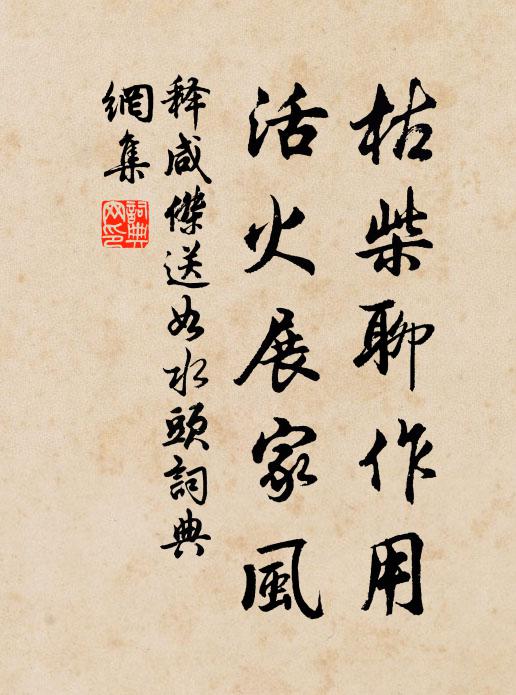 枯柴聊作用
活火展家風
释咸傑送如水頭詞典
網集
詞典
网印